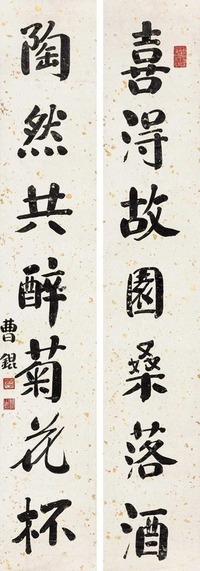 喜得故園桑落酒
陶然共醉菊花杯
曹錕